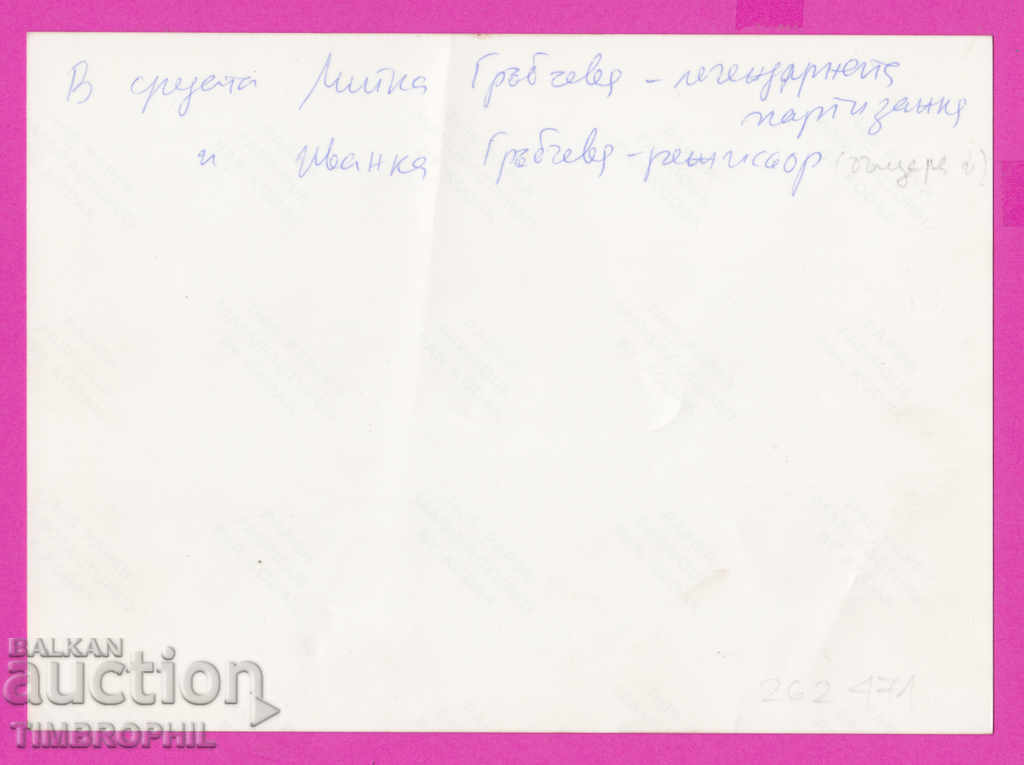 В средата Митка Гръбчева - легендарната
партизанка
и Иванка Гръбчева - режисьор (дъщеря ѝ)
BALKAN
auction
TIMBROPHIL
262471